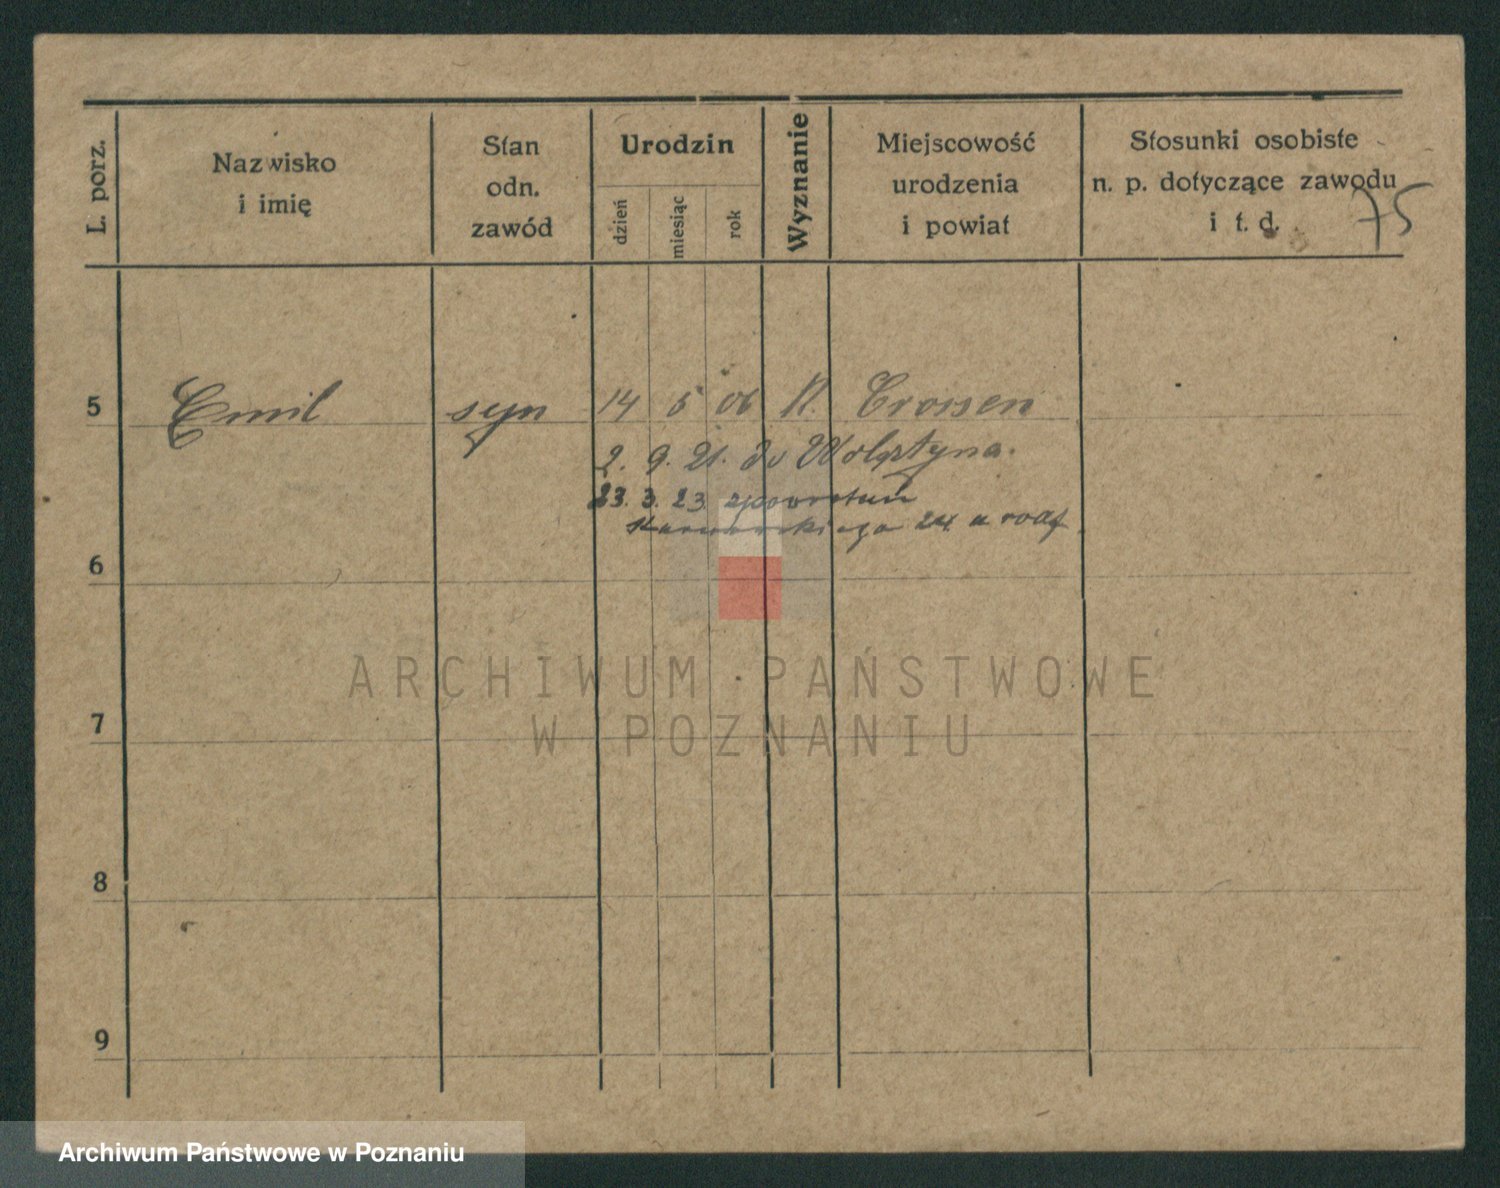 L. porz.
Nazwisko
i imię
Stan
odn.
zawód
Urodzin
dzień
miesiąc
rok
Wyznanie
Miejscowość
urodzenia
i powiat
Stosunki osobiste
n. p. dotyczące zawodu
i t. d.
75
5 Emil syn 14 5 06 K. Crossen
2. 9. 21. do Wolsztyna.
23. 3. 23 zpowrotem
24 u rodz
6
7
8
9
ARCHIWUM PAŃSTWOWE
W POZNANIU
Archiwum Państwowe w Poznaniu